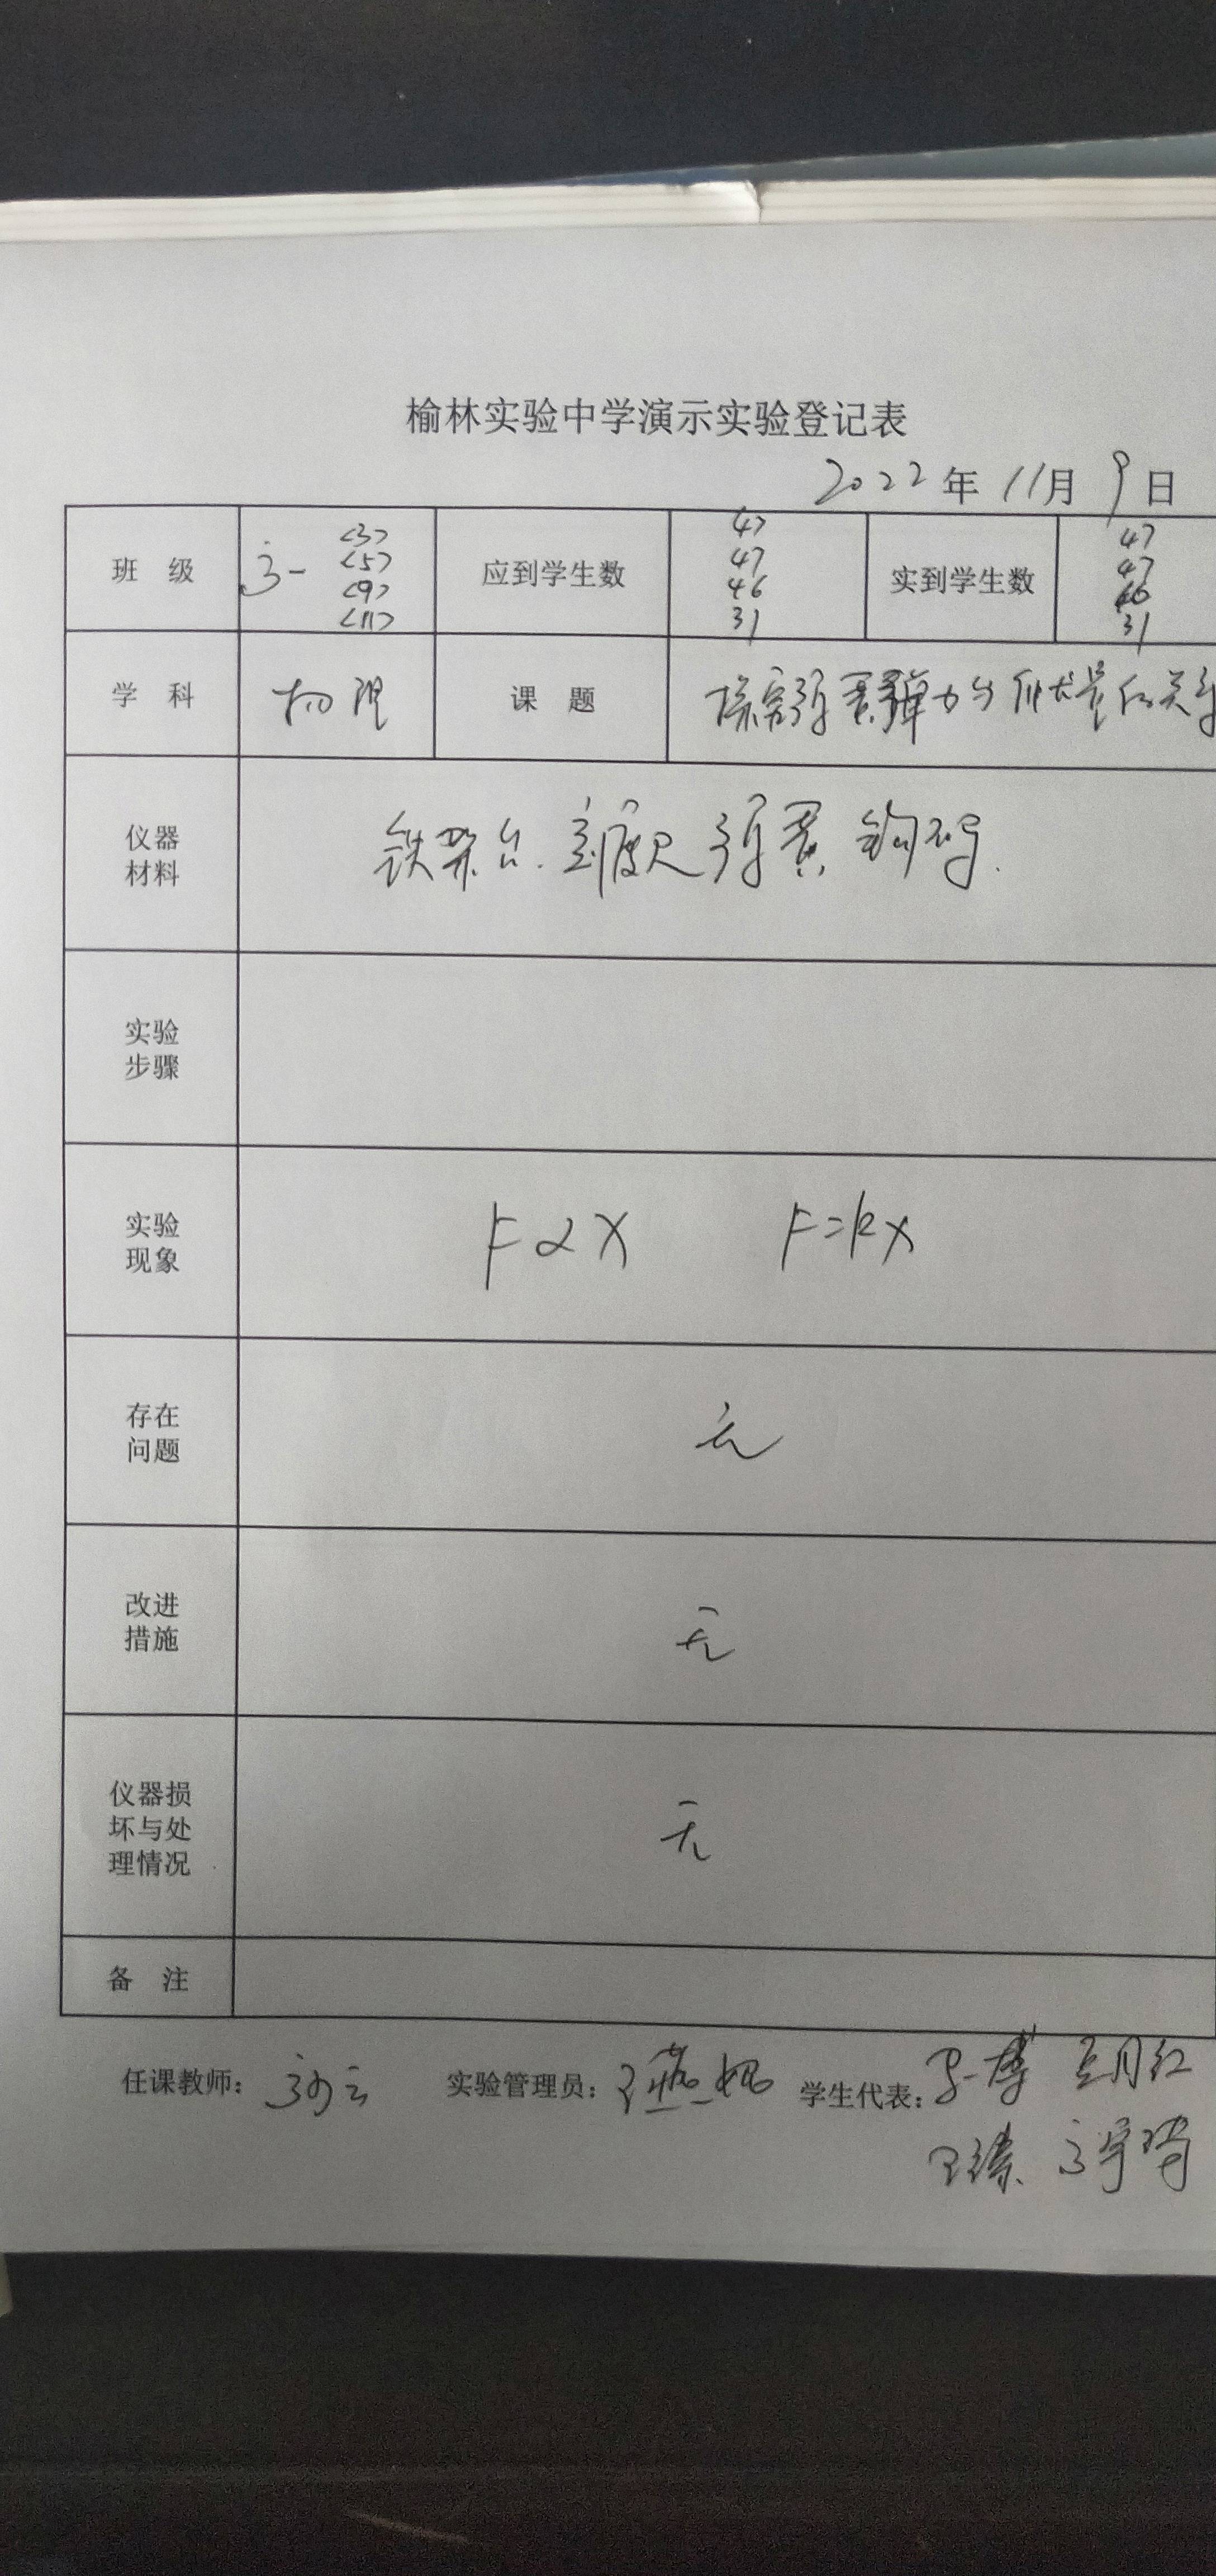 榆林实验中学演示实验登记表
2022年11月9日
班 级 高一 <3> <5> <9> <11> 应到学生数 47 47 46 31 实到学生数 47 47 46 31
学 科 物理 课 题 探究弹簧弹力与伸长量的关系
仪器材料 铁架台.刻度尺 弹簧 钩码.
实验步骤
实验现象 F∝X F=kx
存在问题 无
改进措施 无
仪器损坏与处理情况 无
备 注
任课教师: 实验管理员: 学生代表: